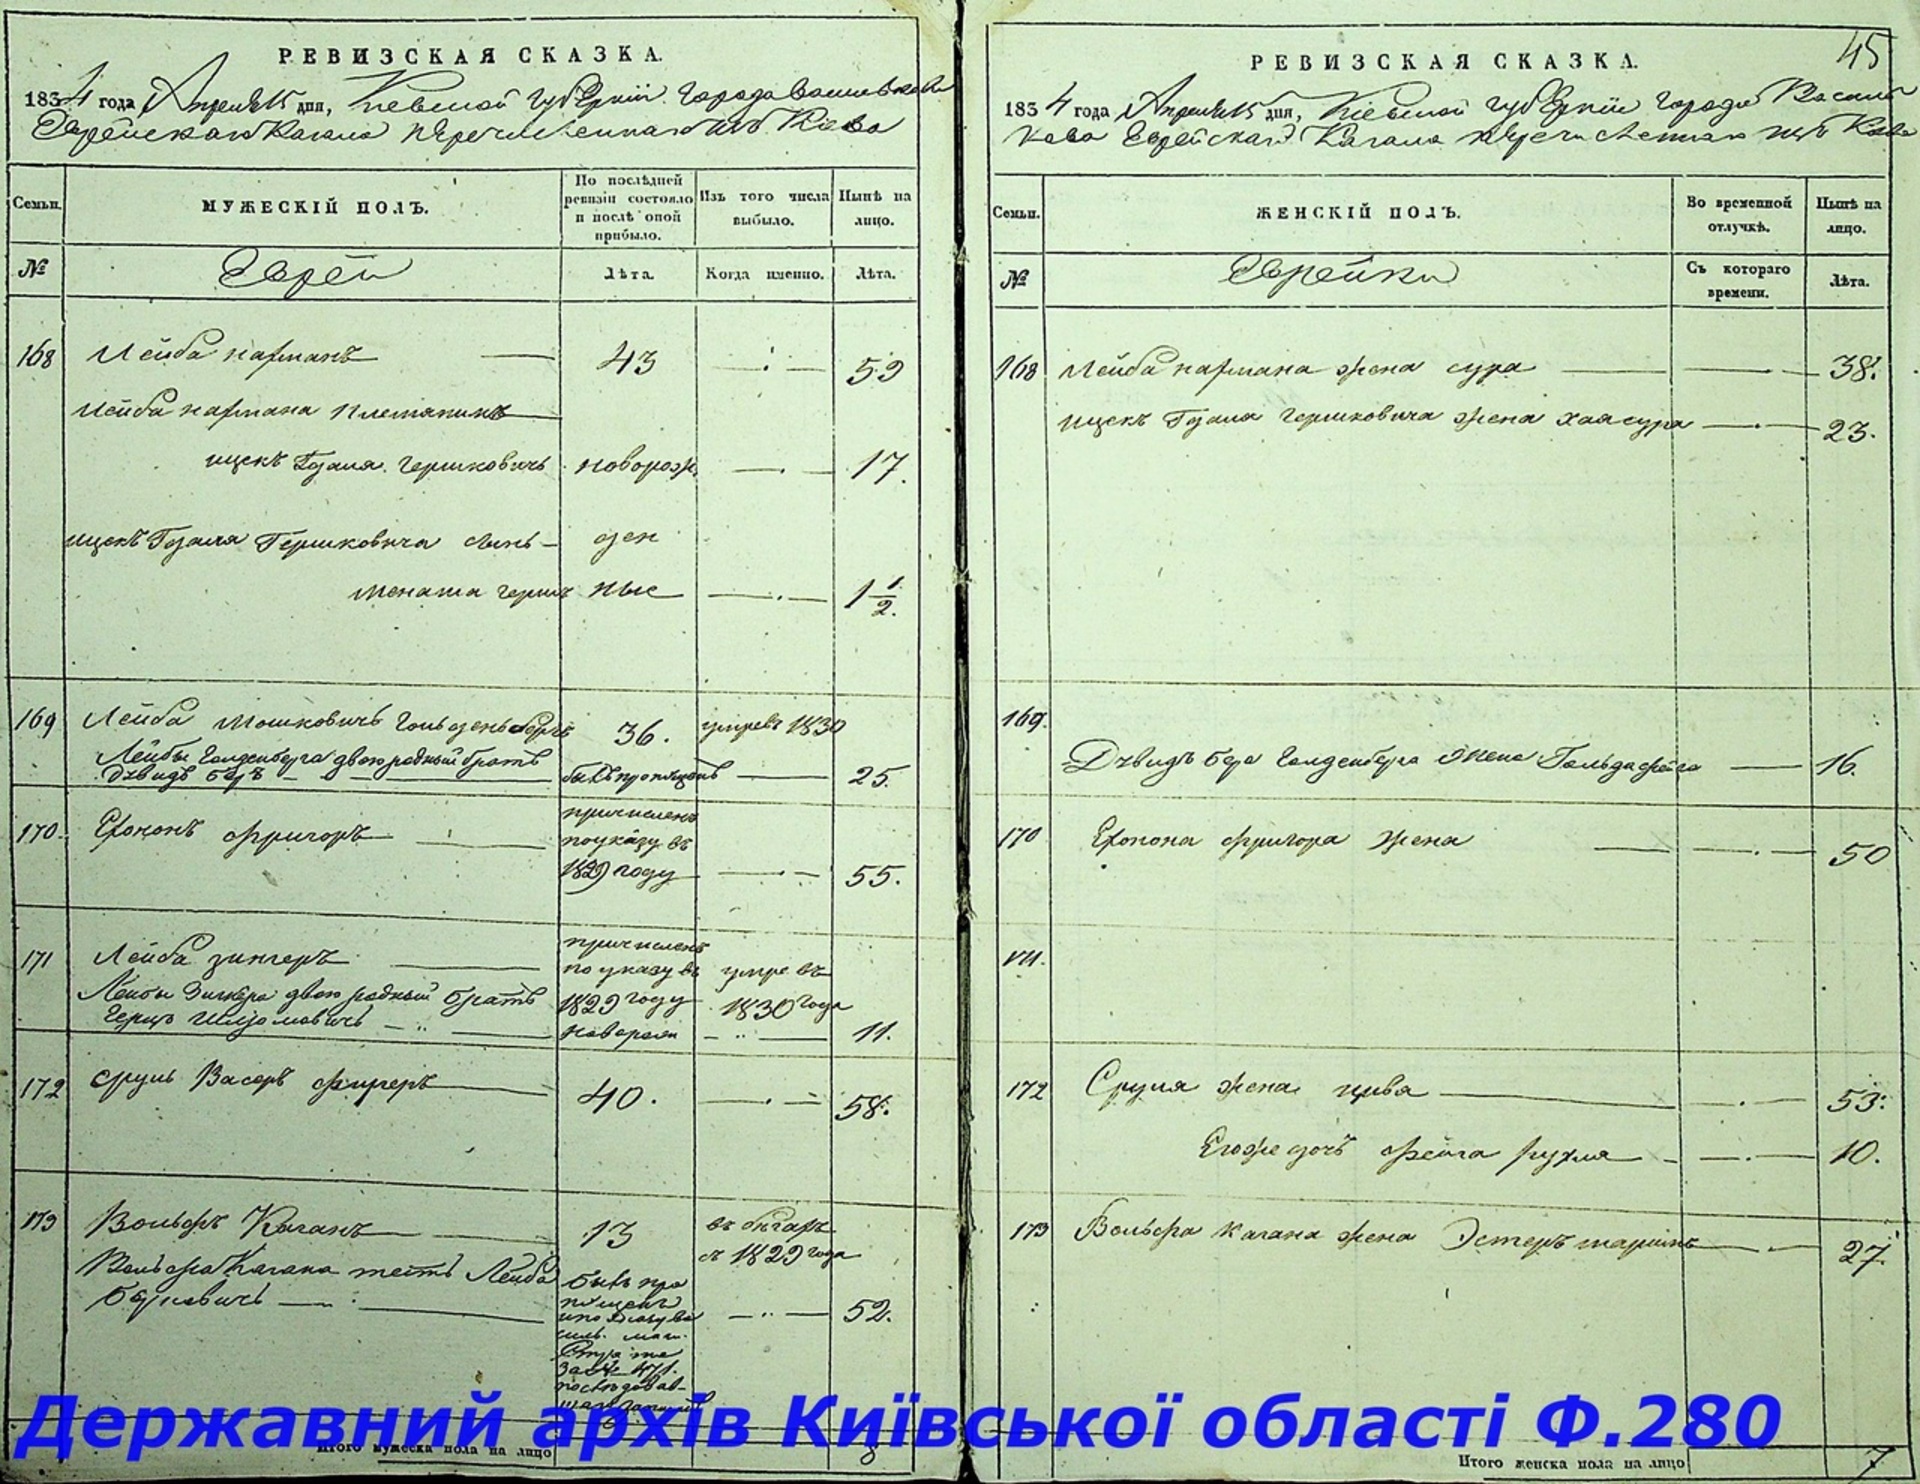 РЕВИЗСКАЯ СКАЗКА.
1834 года Апреля 15 дня, Киевской Губернии Города Василькова
Еврейскаго Кагала перечисленнаго изъ Киева
Семьи.
МУЖЕСКІЙ ПОЛЪ.
По послѣдней
ревизіи состояло
и послѣ оной
прибыло.
Изъ того числа
выбыло.
Нынѣ на
лицо.
№
Евреи
Лѣта.
Когда именно.
Лѣта.
168 Лейба 43 59
Лейба племянникъ
ицекъ Гершковичъ новорож. 17.
ицекъ Гершковича сынъ ден
Герш ные 1 1/2.
169 Лейба Мошковичъ Гольденбергъ 36. умре въ 1830
Лейбы Голденберга двоюродный братъ
Давидъ Беръ былъ пропущенъ 25.
170. причисленъ
по указу въ
1829 году 55.
171 Лейба Зингеръ причисленъ
по указу въ умре въ
Лейбы Зингера двоюродный братъ 1829 году 1830 года
Герцъ Шлiомовичъ новорожд 11.
172 Сруль Васеръ 40. 58.
173 Вольфъ Каганъ 13 въ
съ 1829 года
Вольфа Кагана тесть Лейба былъ про
Берковичъ пущенъ 52.
Итого мужеска пола на лицо 8
45
РЕВИЗСКАЯ СКАЗКА.
1834 года Апреля 15 дня, Киевской Губернии Города Василь
кова Еврейскаго Кагала перечисленнаго изъ Киева
Семьи.
ЖЕНСКІЙ ПОЛЪ.
Во временной
отлучкѣ.
Нынѣ на
лицо.
№
Еврейки
Съ котораго
времени.
Лѣта.
168 Лейба жена сура 38.
ицекъ Гершковича жена хая сура 23.
169.
Давидъ Бера Голденберга жена 16.
170 жена 50
171.
172 Сруля жена цивя 53.
Егоже дочъ фейга рухля 10.
173 Вольфа Кагана жена Эстеръ 27.
Итого женска пола на лицо 7
Державний архів Київської області Ф.280